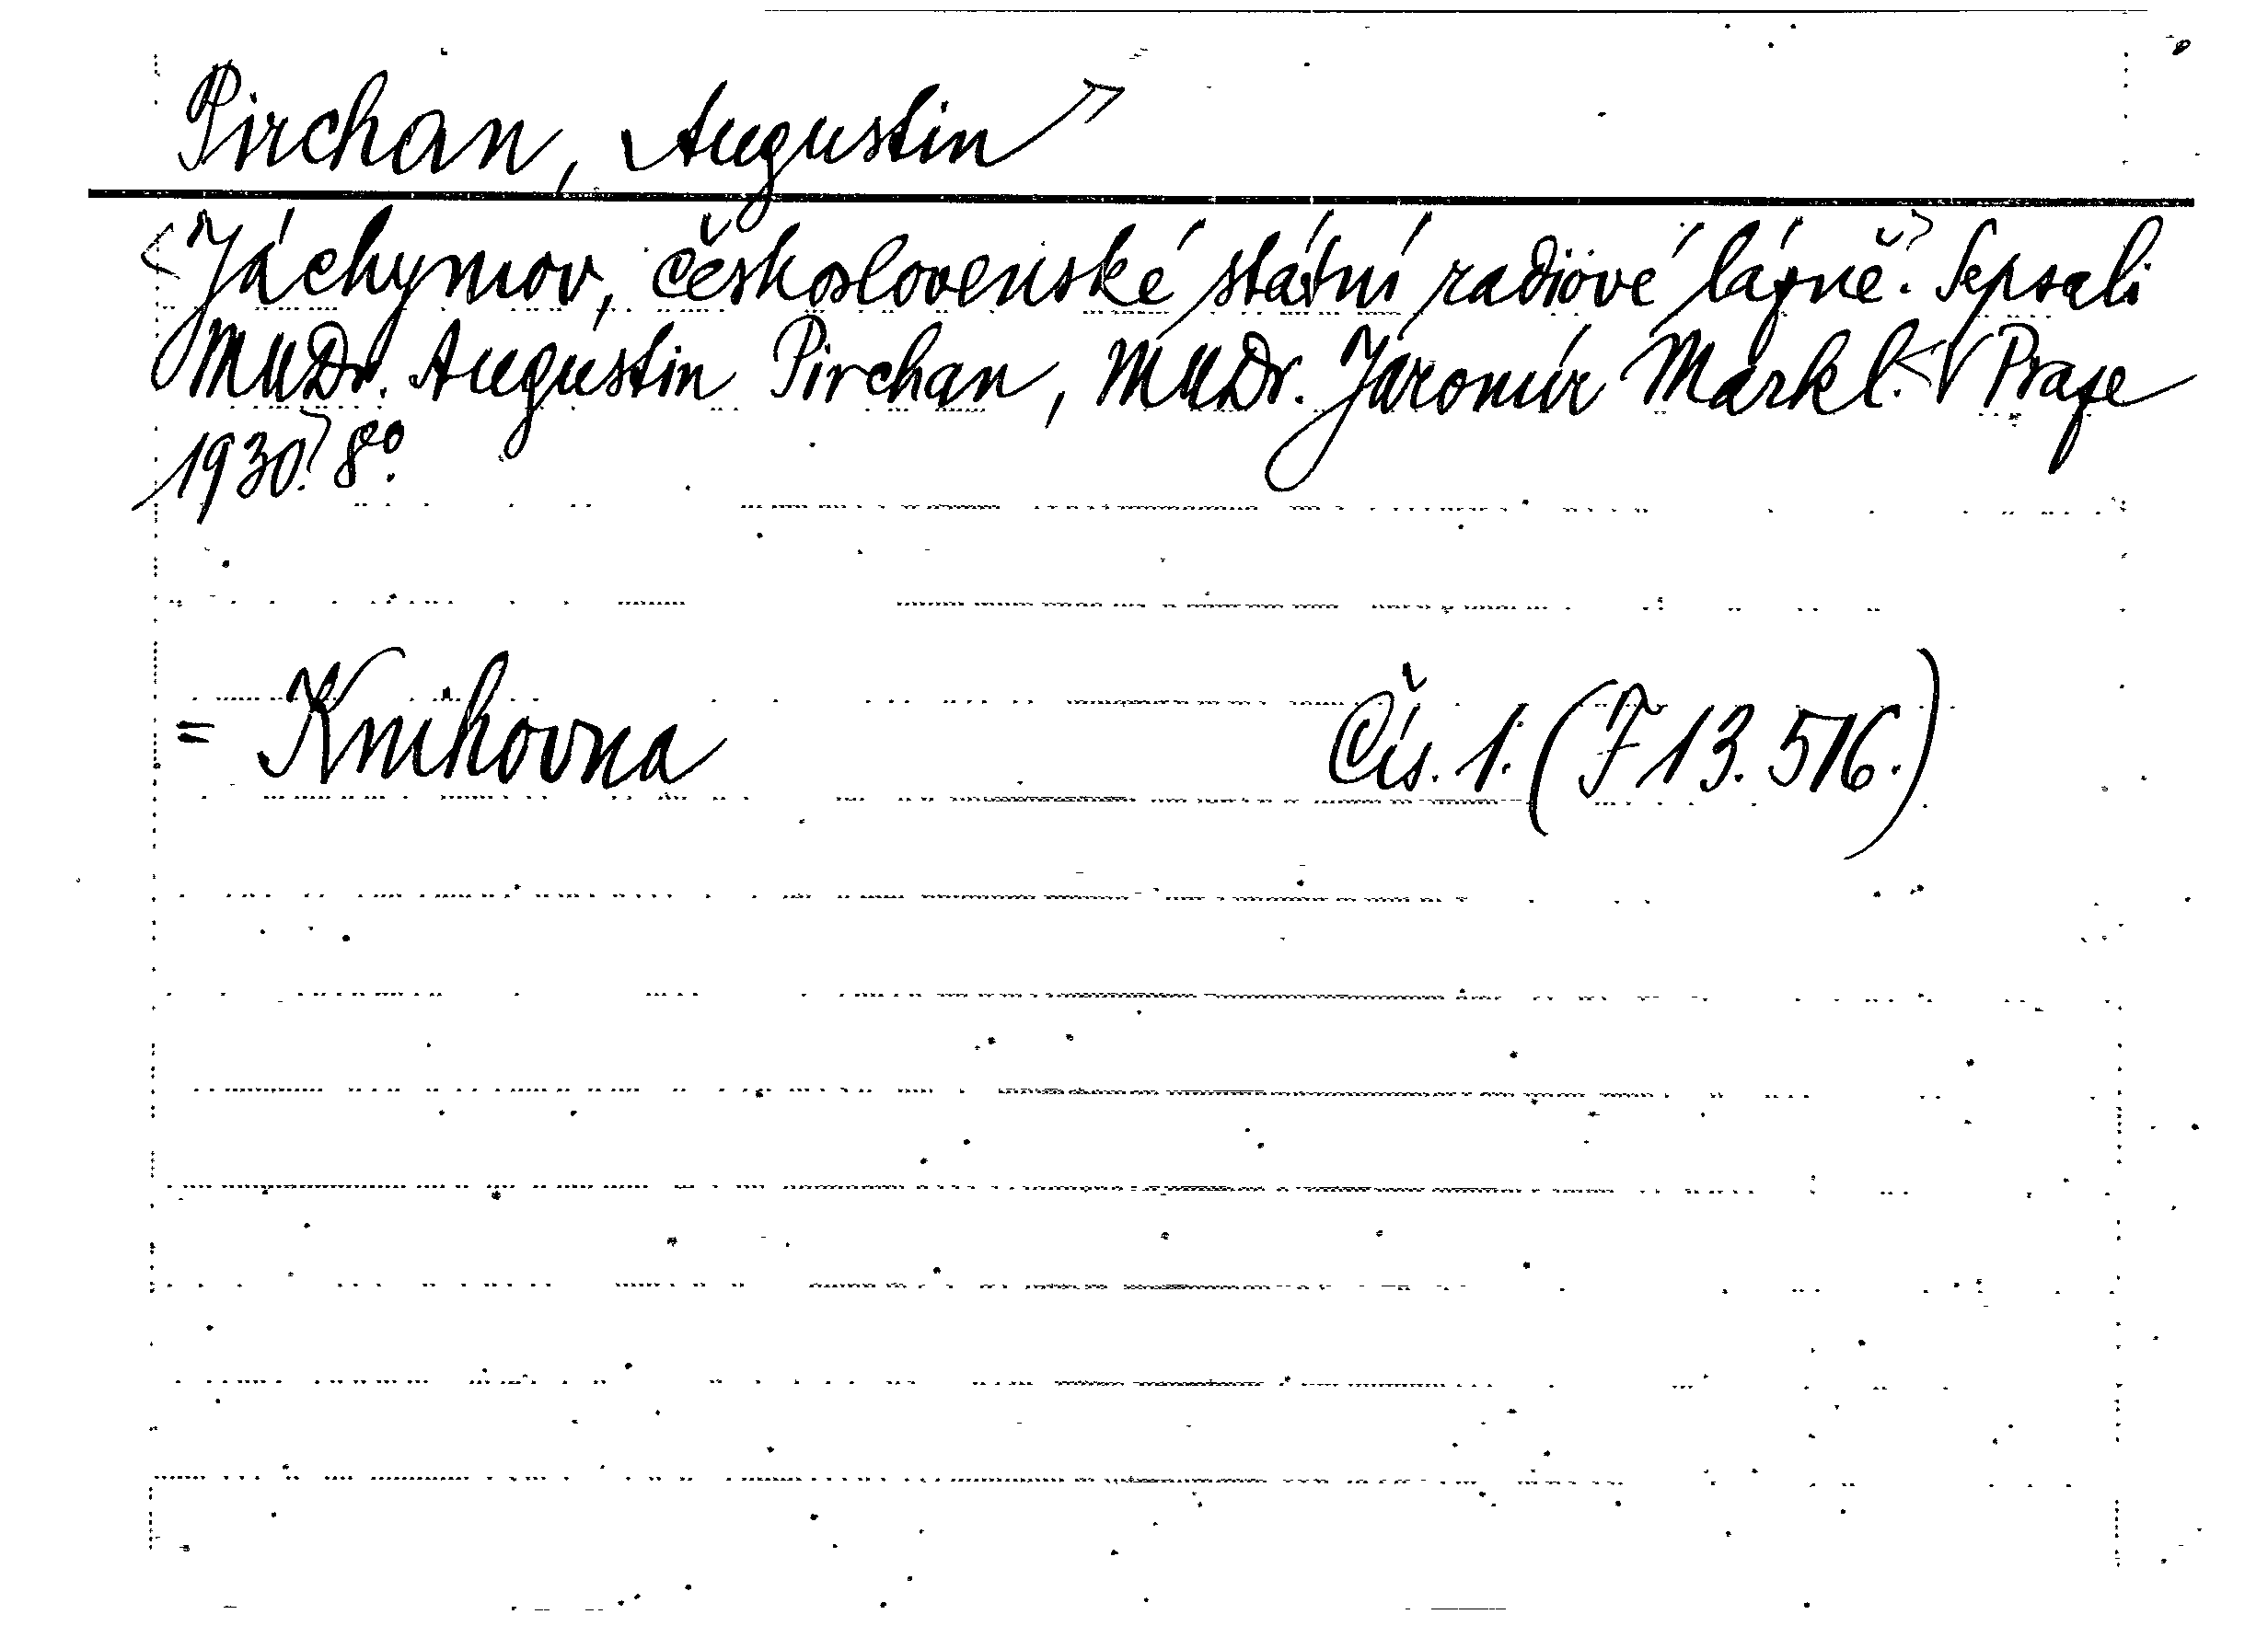 Pirchan, Augustin
<Jáchymov, československé státní radiové lázně.> Sepsali
MUDr. Augustin Pirchan, MUDr. Jaromír Markl. <V Praze
1930.> 8°.
= Knihovna Čís. 1. (F 13.516.)